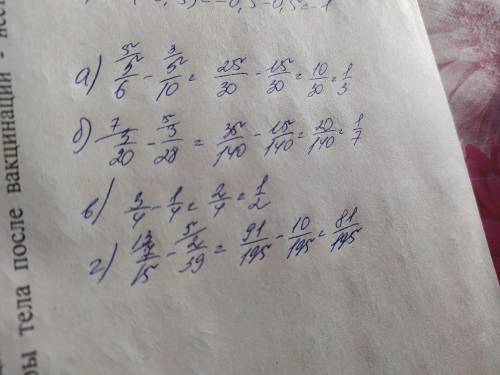 -0,5-0,5=-1
а) 5/6 - 5/10 = 25/30 - 15/30 = 10/30 = 1/3
б) 5/20 - 3/28 = 35/140 - 15/140 = 20/140 = 1/7
в) 3/4 - 1/4 = 2/4 = 1/2
г) 7/15 - 2/39 = 91/195 - 10/195 = 81/195
ры тела после вакцинации -